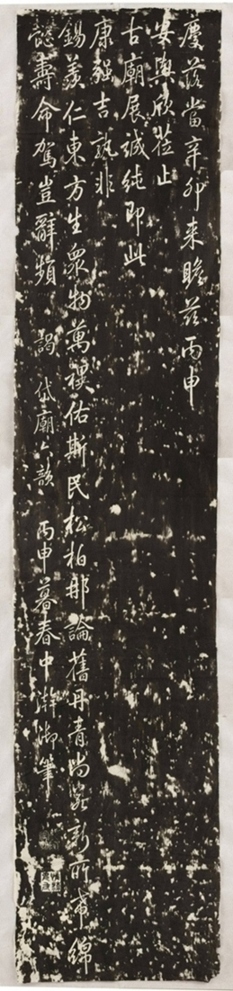 慶落當辛卯来瞻茲丙申
安輿欣莅止
古廟展誠純即此
康強吉孰非
錫羨仁東方生衆物萬禩佑斯民松柏那論舊丹青尚若新所希綿
懿壽命駕豈辭頻 謁岱廟六韻 丙申暮春中澣御筆